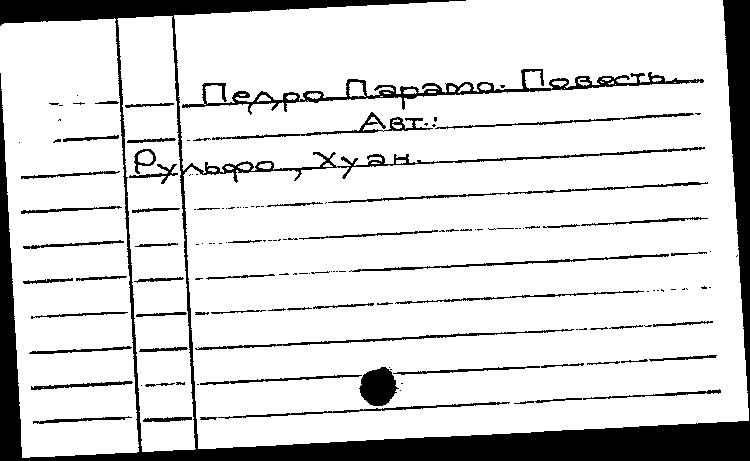 Педро Парамо. Повесть.
Авт.:
Рульфо, Хуан.